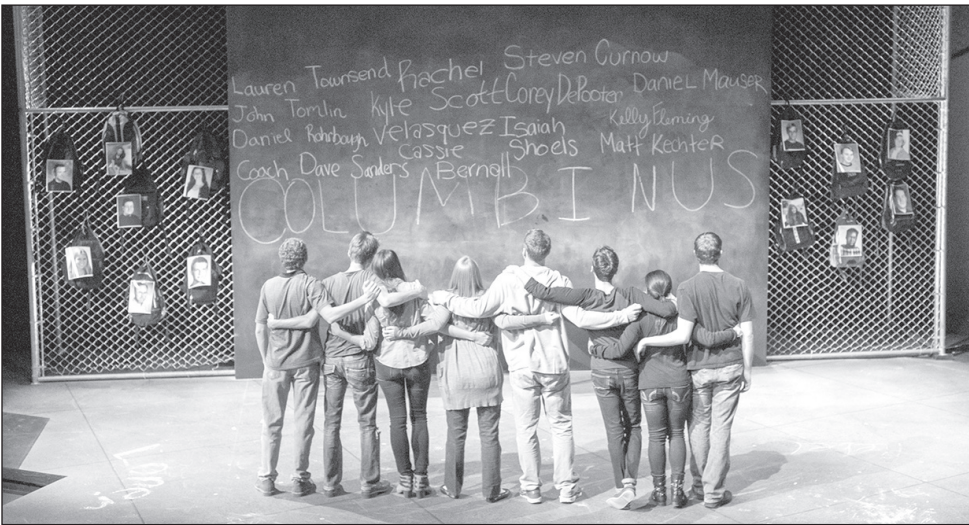 Steven Curnow
Lauren Townsend Rachel
John Tomlin Kyle Scott Corey DePooter Daniel Mauser
Daniel Rohrbough Velasquez Isaiah Kelly Fleming
Cassie Shoels Matt Kechter
Coach Dave Sanders Bernall
COLUMBINUS